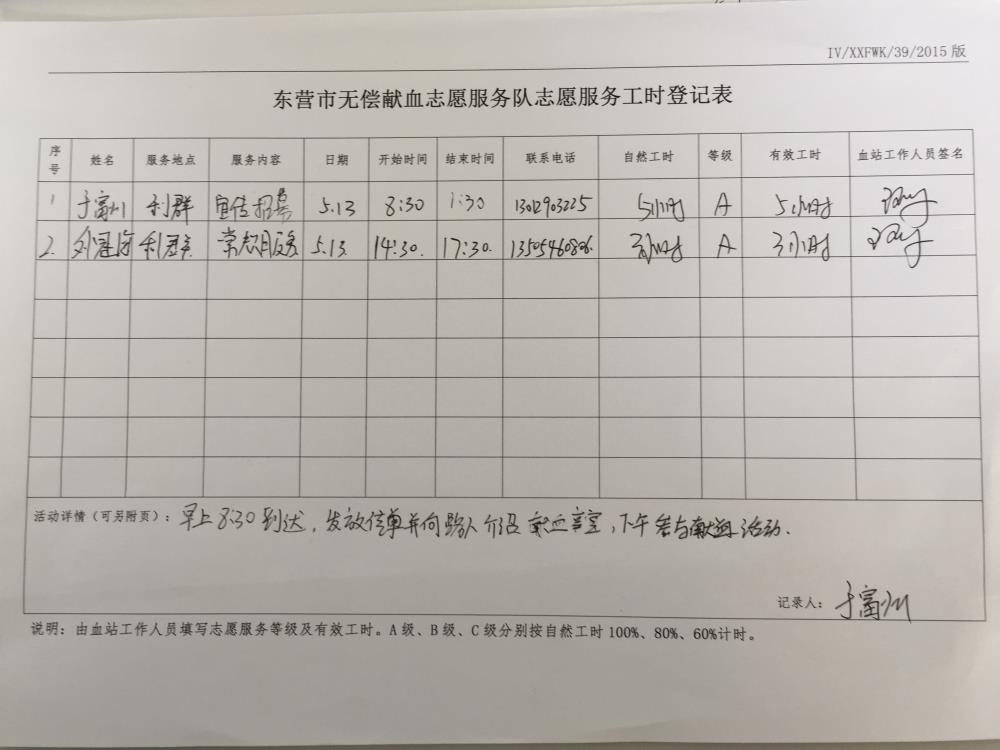 IV/XXFWK/39/2015 版
东营市无偿献血志愿服务队志愿服务工时登记表
序号 姓名 服务地点 服务内容 日期 开始时间 结束时间 联系电话 自然工时 等级 有效工时 血站工作人员签名
1 于富州 利群 宣传招募 5.13 8:30 1:30 13012903225 5小时 A 5小时
2. 利群 5.13. 14:30. 17:30. 13505460806. 3小时 A 3小时
活动详情（可另附页）：早上8:30到达，发放传单并向路人介绍献血 ，下午参与 活动.
记录人：于富州
说明：由血站工作人员填写志愿服务等级及有效工时。A 级、B 级、C 级分别按自然工时 100%、80%、60%计时。